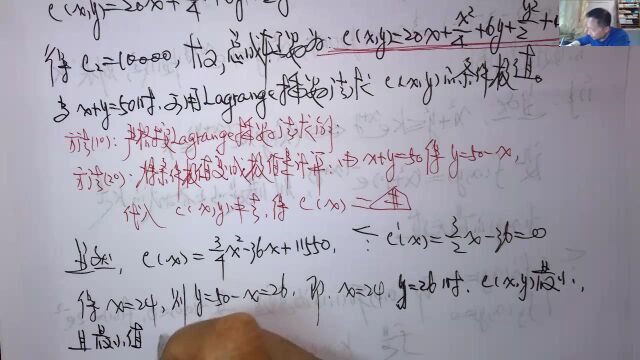 c(x,y)=20x+x²/4+6y+
得 c₂=10000, 故, 总成本函数为: c(x,y)=20x+x²/4+6y+y²/2+
当 x+y=50时. 可用Lagrange 乘数法求 c(x,y)的条件极值。
方法(1°): 直接使用Lagrange 乘数法求解.
方法(2°): 将条件极值变成极值来计算. 由 x+y=50得 y=50-x,
代入 c(x,y)中去, 得 c(x)=
c(x)=3/4x²-36x+11550, c'(x)=3/2x-36=0
得 x=24, 则 y=50-x=26. 即. x=24 y=26时. c(x,y)最小,
且最小值